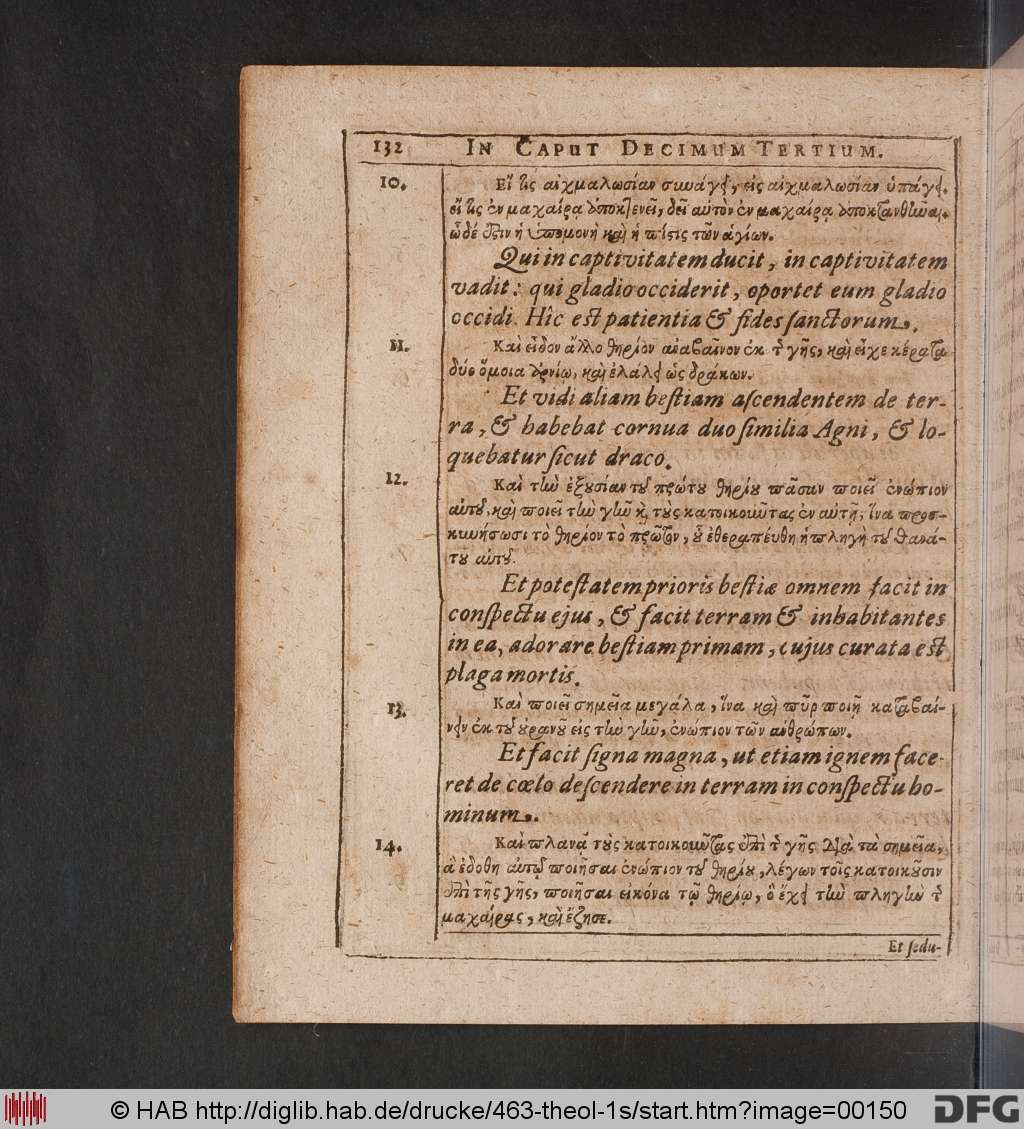 132 IN CAPUT DECIMUM TERTIUM.
10. Εἴ τις αἰχμαλωσίαν συνάγει, εἰς αἰχμαλωσίαν ὑπάγει.
εἴ τις ἐν μαχαίρᾳ ἀποκτενεῖ, δεῖ αὐτὸν ἐν μαχαίρᾳ ἀποκτανθῆναι.
ὧδέ ἐστιν ἡ ὑπομονὴ καὶ ἡ πίστις τῶν ἁγίων.
Qui in captivitatem ducit, in captivitatem
vadit: qui gladio occiderit, oportet eum gladio
occidi. Hîc est patientia & fides ſanctorum.
11. Καὶ εἶδον ἄλλο θηρίον ἀναβαῖνον ἐκ τῆς γῆς, καὶ εἶχε κέρατα
δύο ὅμοια ἀρνίῳ, καὶ ἐλάλει ὡς δράκων.
Et vidi aliam beſtiam aſcendentem de ter-
ra, & habebat cornua duo ſimilia Agni, & lo-
quebatur ſicut draco.
12. Καὶ τὴν ἐξουσίαν τοῦ πρώτου θηρίου πᾶσαν ποιεῖ ἐνώπιον
αὐτοῦ, καὶ ποιεῖ τὴν γῆν καὶ τοὺς κατοικοῦντας ἐν αὐτῇ, ἵνα προσ-
κυνήσωσι τὸ θηρίον τὸ πρῶτον, οὗ ἐθεραπεύθη ἡ πληγὴ τοῦ θανά-
του αὐτοῦ.
Et poteſtatem prioris beſtiæ omnem facit in
conſpectu ejus, & facit terram & inhabitantes
in ea, adorare beſtiam primam, cujus curata eſt
plaga mortis.
13. Καὶ ποιεῖ σημεῖα μεγάλα, ἵνα καὶ πῦρ ποιῇ καταβαί-
νειν ἐκ τοῦ οὐρανοῦ εἰς τὴν γῆν, ἐνώπιον τῶν ἀνθρώπων.
Et facit ſigna magna, ut etiam ignem face-
ret de cœlo deſcendere in terram in conſpectu ho-
minum.
14. Καὶ πλανᾷ τοὺς κατοικοῦντας ἐπὶ τῆς γῆς διὰ τὰ σημεῖα,
ἃ ἐδόθη αὐτῷ ποιῆσαι ἐνώπιον τοῦ θηρίου, λέγων τοῖς κατοικοῦσιν
ἐπὶ τῆς γῆς, ποιῆσαι εἰκόνα τῷ θηρίῳ, ὃ ἔχει τὴν πληγὴν τῆς
μαχαίρας, καὶ ἔζησε.
Et ſedu-
© HAB http://diglib.hab.de/drucke/463-theol-1s/start.htm?image=00150
DFG